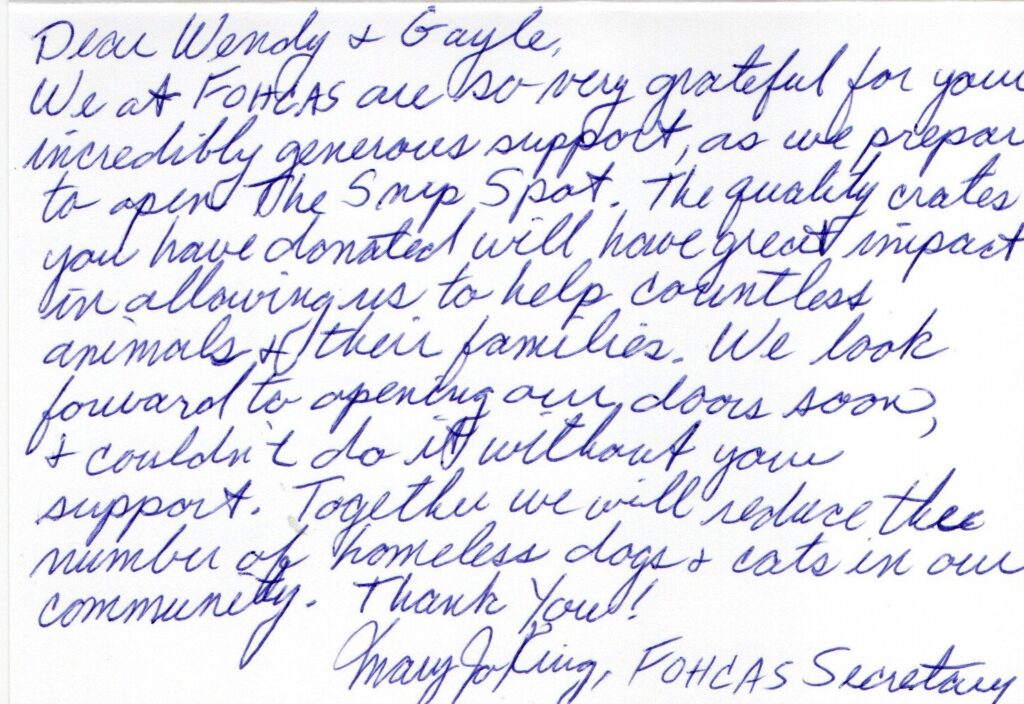 Dear Wendy & Gayle,
We at FOHCAS are so very grateful for your
incredibly generous support, as we prepar
to open The Snip Spot. The quality crates
you have donated will have great impact
in allowing us to help countless
animals & their families. We look
forward to opening our doors soon,
& couldn't do it without your
support. Together we will reduce the
number of homeless dogs & cats in our
community. Thank You!
Mary Jo King, FOHCAS Secretary